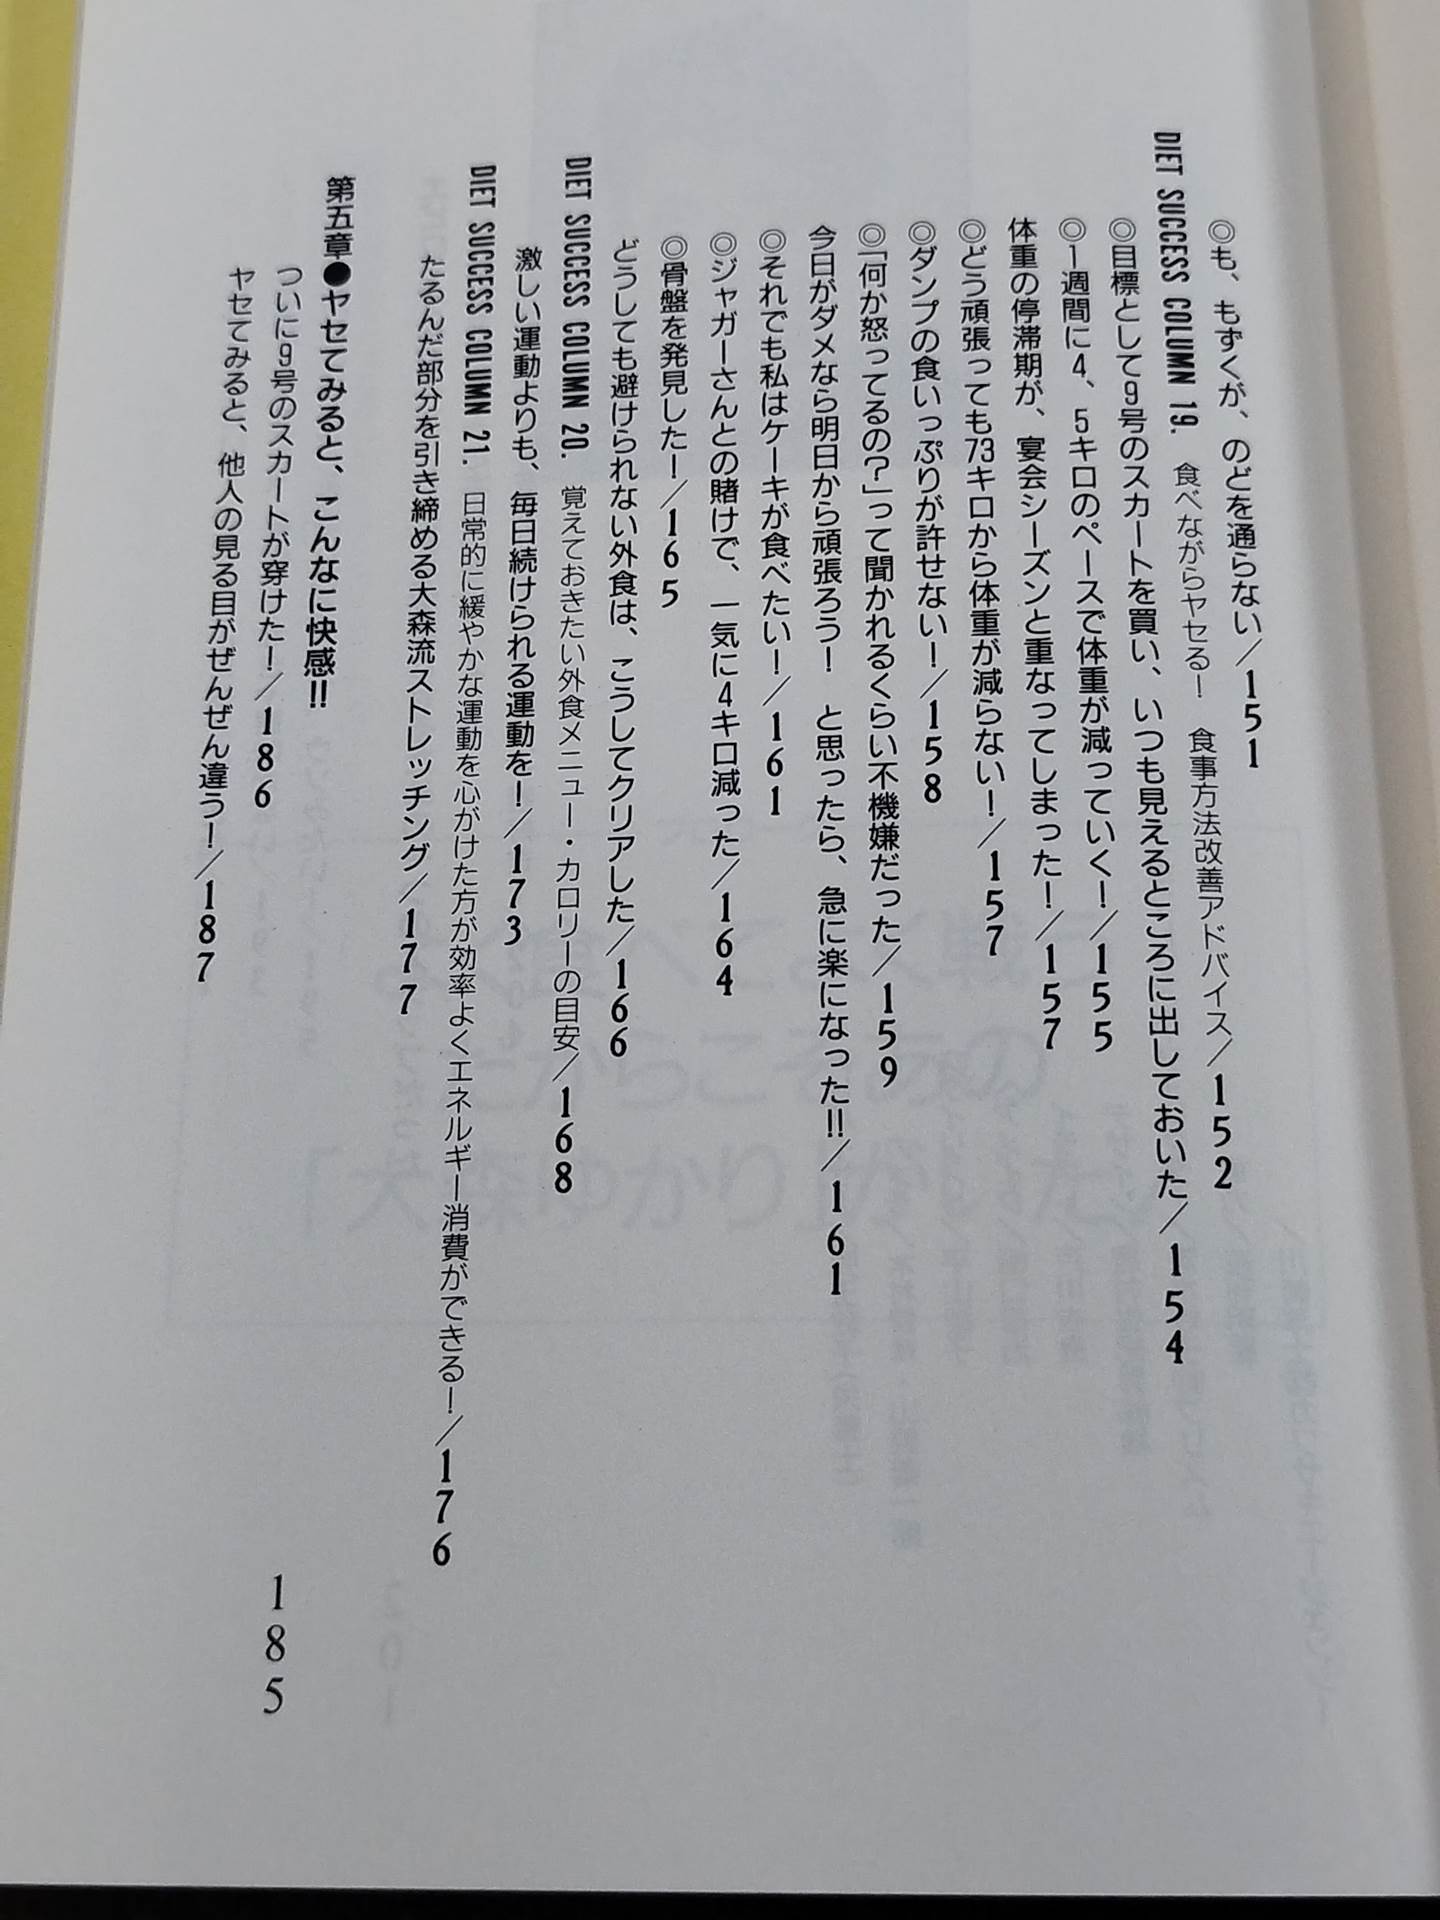 ◎も、もずくが、のどを通らない／151
DIET SUCCESS COLUMN 19. 食べながらヤセる！ 食事方法改善アドバイス／152
◎目標として9号のスカートを買い、いつも見えるところに出しておいた／154
◎1週間に4、5キロのペースで体重が減っていく！／155
体重の停滞期が、宴会シーズンと重なってしまった！／157
◎どう頑張っても73キロから体重が減らない！／157
◎ダンプの食いっぷりが許せない！／158
◎「何か怒ってるの？」って聞かれるくらい不機嫌だった／159
今日がダメなら明日から頑張ろう！ と思ったら、急に楽になった!!／161
◎それでも私はケーキが食べたい！／161
◎ジャガーさんとの賭けで、一気に4キロ減った／164
◎骨盤を発見した！／165
どうしても避けられない外食は、こうしてクリアした／166
DIET SUCCESS COLUMN 20. 覚えておきたい外食メニュー・カロリーの目安／168
激しい運動よりも、毎日続けられる運動を！／173
DIET SUCCESS COLUMN 21. 日常的に緩やかな運動を心がけた方が効率よくエネルギー消費ができる！／176
たるんだ部分を引き締める大森流ストレッチング／177
第五章●ヤセてみると、こんなに快感!!
185
ついに9号のスカートが穿けた！／186
ヤセてみると、他人の見る目がぜんぜん違う！／187